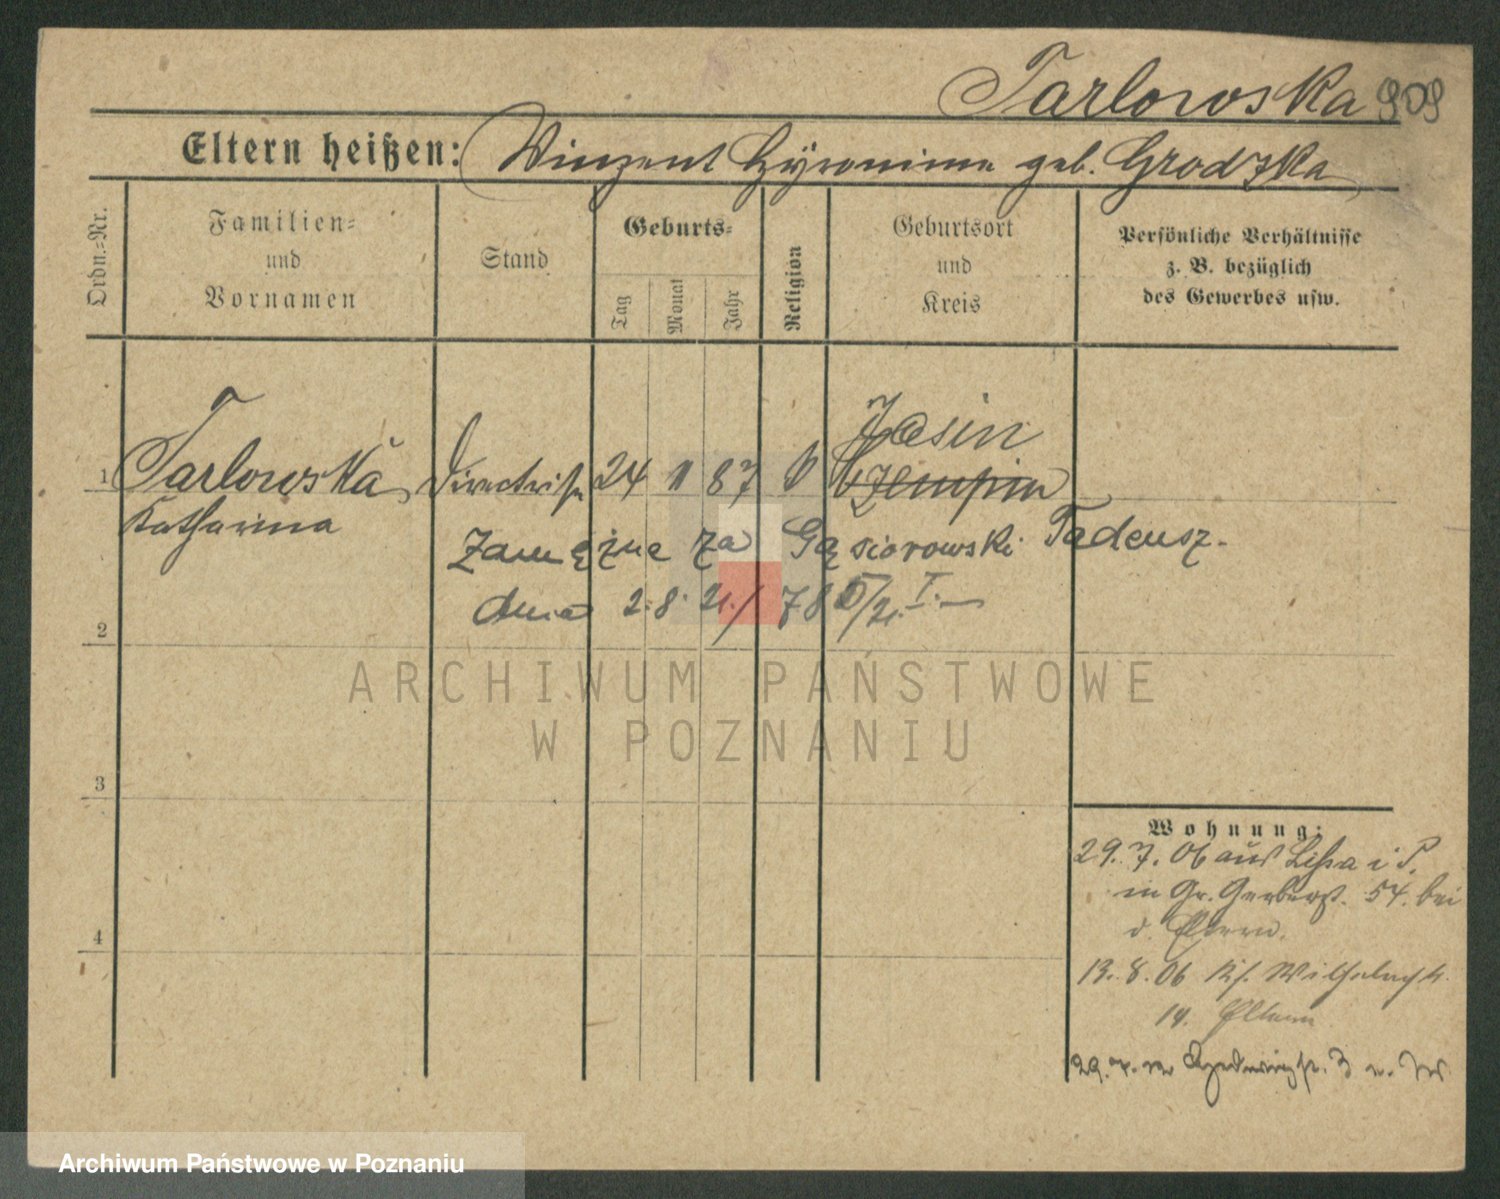 Tarlowska 909
Eltern heißen: Winzent Hyronima geb. Grodzka
Ordn.=Nr.
Familien=
und
Vornamen
Stand
Geburts=
Tag
Monat
Jahr
Religion
Geburtsort
und
Kreis
Persönliche Verhältnisse
z. B. bezüglich
des Gewerbes usw.
Jasin
1 Tarlowska Directrise 24 11 87 Czempin
Katharina
Zamężna za Gąsiorowski Tadeusz.
dnia 2.8.21./785/21. I. —
2
ARCHIWUM PAŃSTWOWE
W POZNANIU
3
4
Wohnung:
29. 7. 06 aus Lissa i P.
in Gr. Gerberst. 54. bei
d. Eltern.
13. 8. 06
14. Eltern
Archiwum Państwowe w Poznaniu